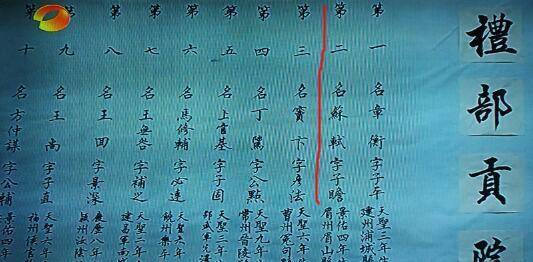 禮部貢院
第一名章衡字子平
天聖三年生
建州浦城縣
第二名蘇軾字子瞻
景佑四年生
眉州眉山縣
第三名竇卞字彥法
天聖六年
曹州冤句
第四名丁騭字公點
天聖九年
常州晉陵
第五名上官基字子固
邵武軍光澤
第六名馬修輔字必達
天聖六年
饒州樂平
第七名王無咎字補之
天聖二年
建昌軍南
第八名王回字景深
慶曆八年
潁州汝陰
第九名王尚字子直
天聖六年
福州侯官
第十名方仲謀字公輔
景佑四年